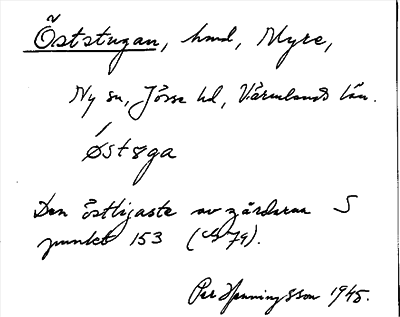 Öststugan, hmd, Myre,
Ny sn, Jösse hd, Värmlands län.
Østøga
Den östligaste av gårdarna S
punkt 153
Per Henningsson 1945.